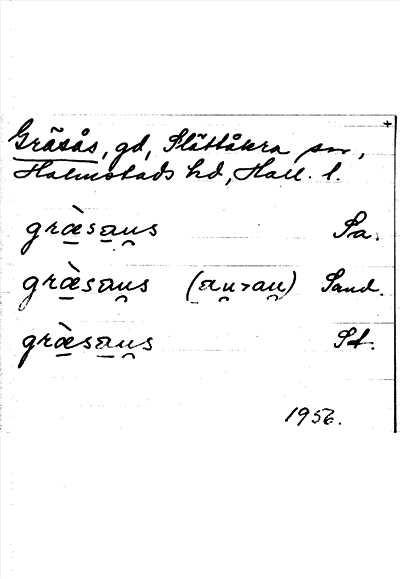 +
Gräsås, gd, Slättåkra sn,
Halmstads hd, Hall. l.
græ̀sau̯s Sa.
græ̀sau̯s (au̯>au̯) Sand.
græ̀sau̯s St.
1956.